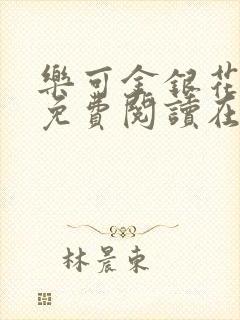 樂可金銀花
免費閱讀在
林晨東